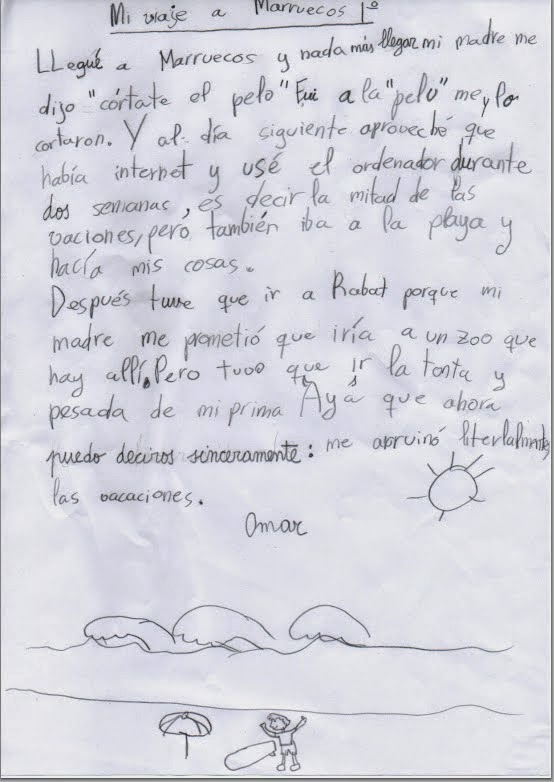 Mi viaje a Marruecos 1º
LLegué a Marruecos y nada más llegar mi madre me
dijo "córtate el pelo" Fui a la "pelu" me, y lo
cortaron. Y al día siguiente aproveché que
había internet y usé el ordenador durante
dos semanas, es decir la mitad de las
vaciones, pero también iba a la playa y
hacía mis cosas.
Después tuve que ir a Rabat porque mi
madre me prometió que iría a un zoo que
hay allí. Pero tuvo que ir la tonta y
pesada de mi prima Aya que ahora
puedo deciros sinceramente: me apruinó literlalmente
las vacaciones.
Omar